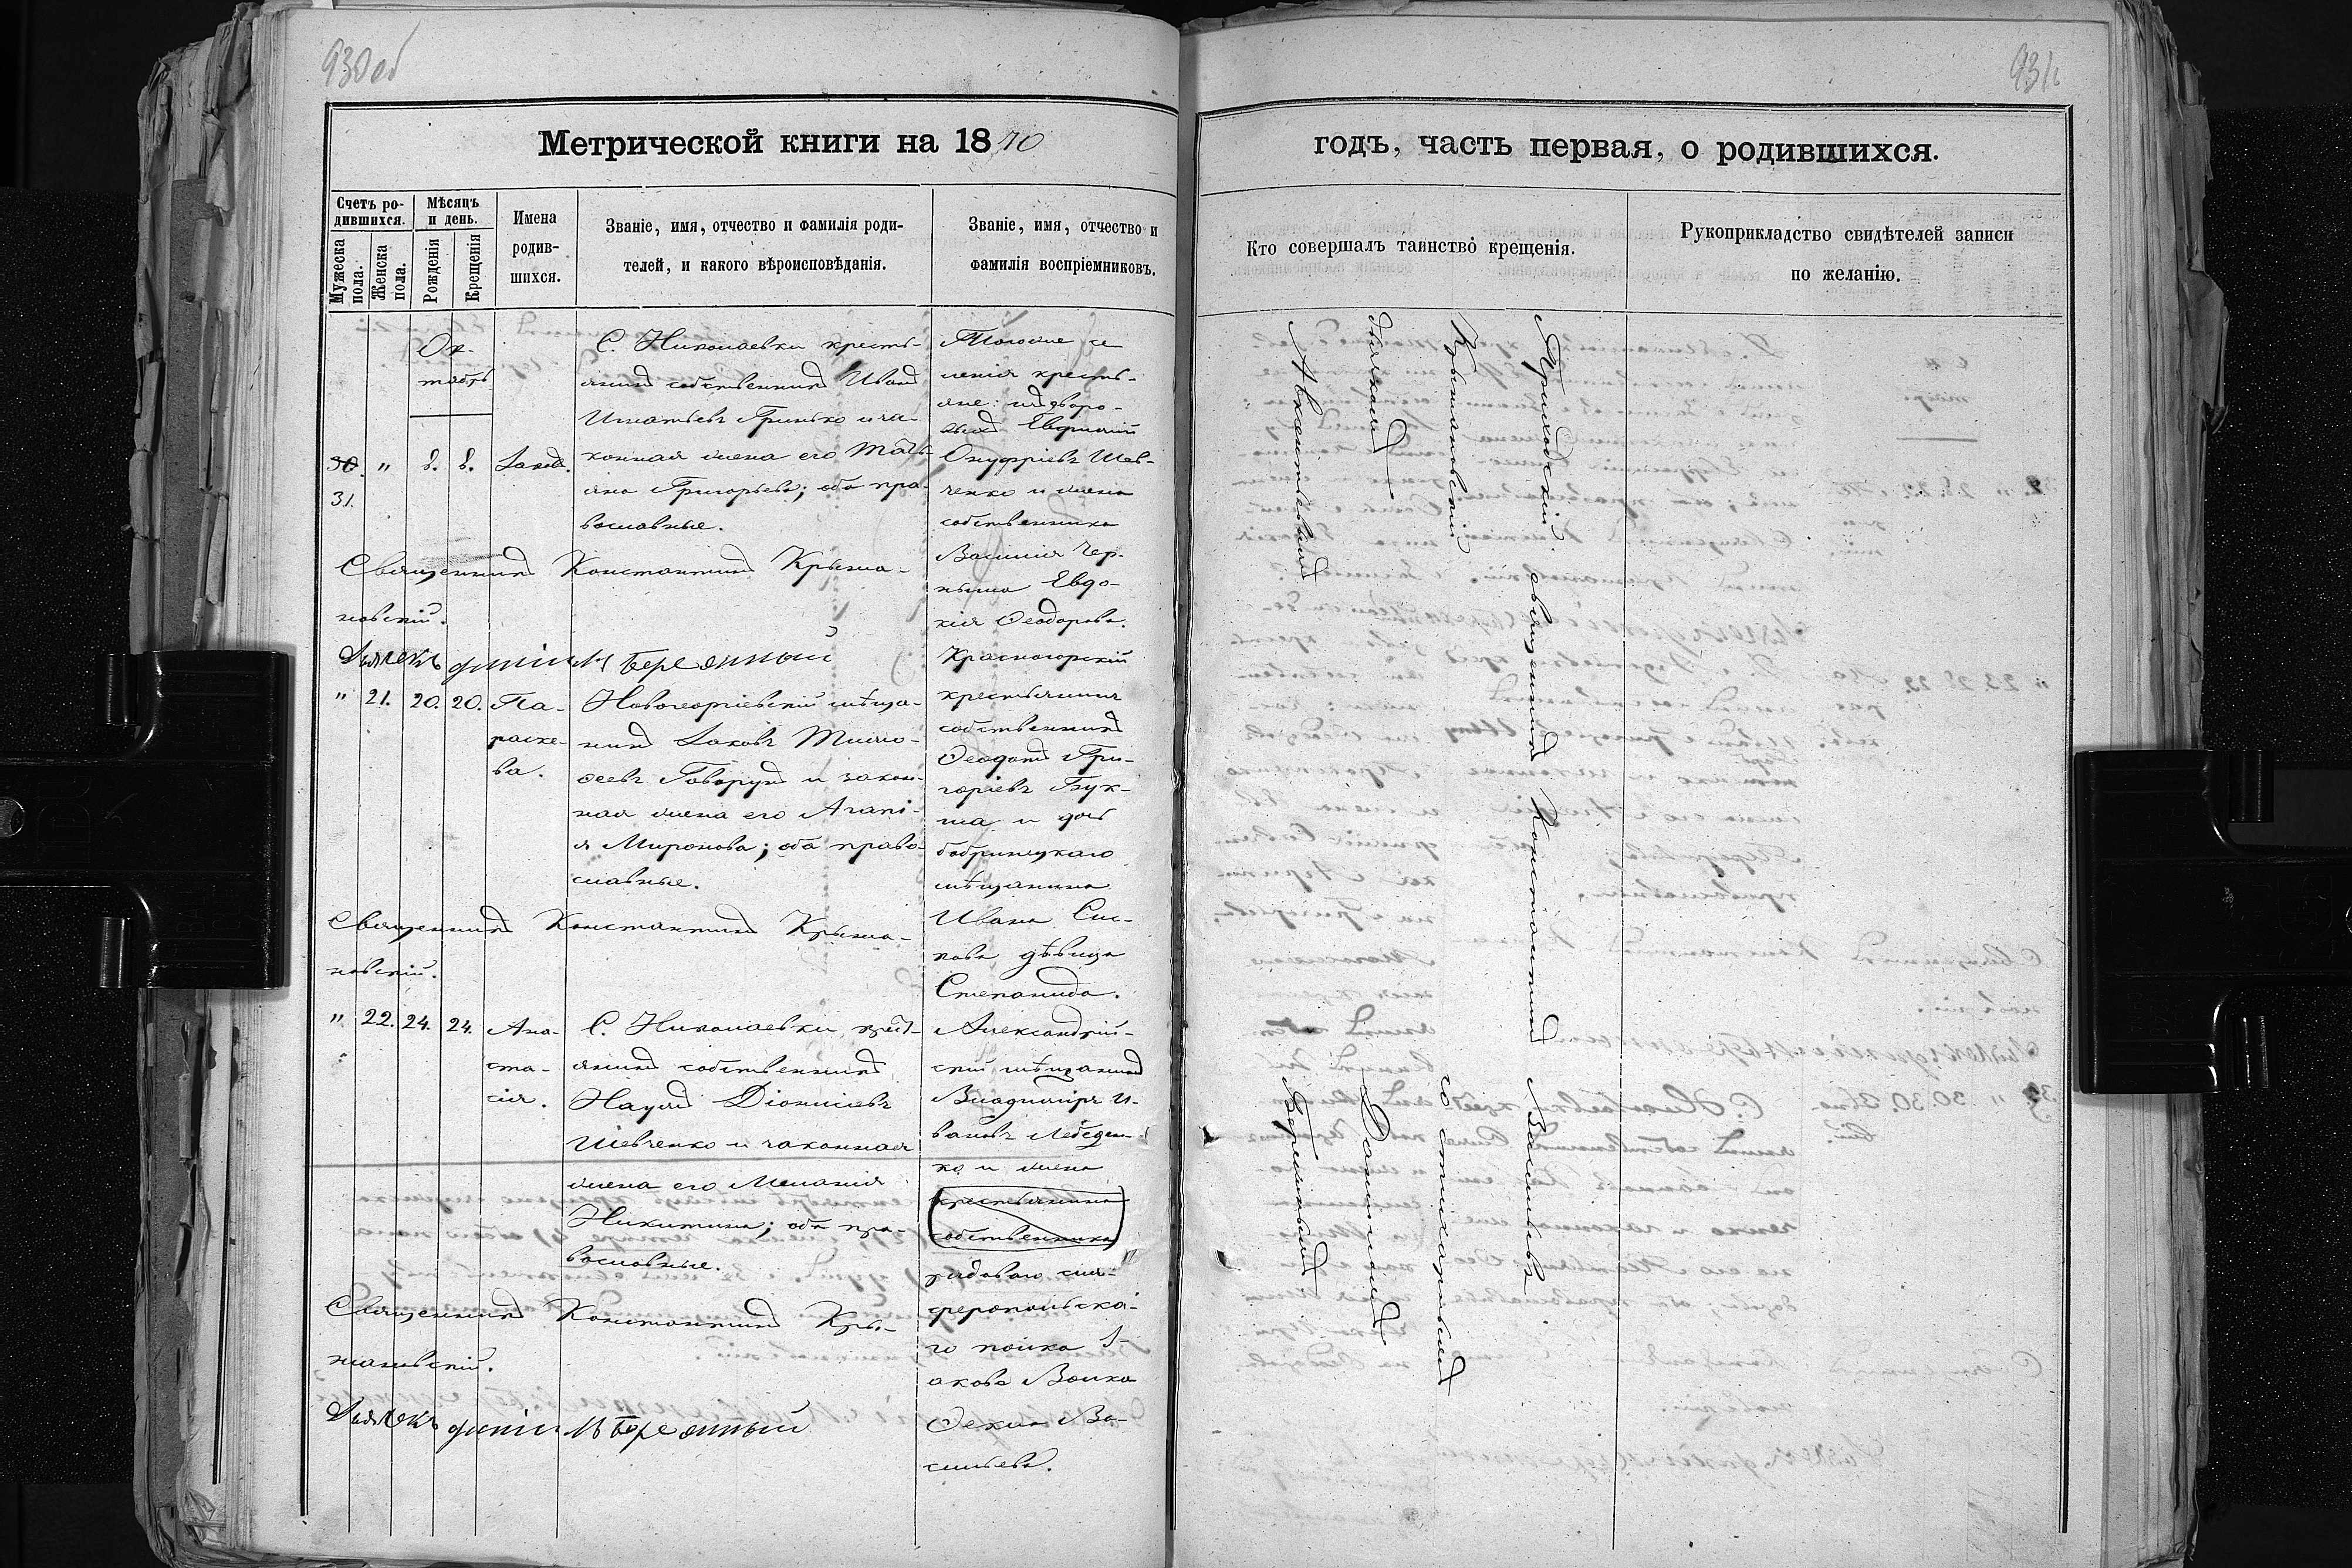 930 об
Метрической книги на 1870
Счетъ ро-
дившихся.
Мужеска пола.
Женска пола.
Мѣсяцъ
и день.
Рожденія
Крещенія
Имена
родив-
шихся.
Званіе, имя, отчество и фамилія роди-
телей, и какого вѣроисповѣданія.
Званіе, имя, отчество и
фамилія воспріемниковъ.
Ок-
тябрь
30.
31.
"
8.
8.
Іаковъ.
С. Николаевки кресть-
янинъ собственникъ Иванъ
Игнатьевъ Гринько и за-
конная жена его Тать-
яна Григорьева; оба пра-
вославные.
Тогоже се
ленія кресть-
яне:
Евфимій
Онуфріевъ Шев-
ченко и жена
собственника
Василія Чер-
ныша Евдо-
кія Ѳеодорова.
Священникъ Константинъ Крыжа-
новскій.
Дьячекъ Бережный
"
21.
20.
20.
Па-
раске-
ва.
Новогеоргіевскій мѣща-
нинъ Іаковъ Тимо-
ѳеевъ Говорунъ и закон-
ная жена его Агапі-
я Миронова; оба право-
славные.
Красногорскій
крестьянинъ
собственникъ
Ѳеодотъ Гри-
горіевъ Бук-
ша и дочь
бобринецкаго
мѣщанина
Ивана
дѣвица
Степанида.
Священникъ Константинъ Крыжа-
новскій.
"
22.
24.
24.
Ана-
ста-
сія.
С. Николаевки крест-
янинъ собственникъ
Наумъ Діонисіевъ
Шевченко и законная
жена его Меланія
Никитина; оба пра-
вославные.
Александрій-
скій мѣщанинъ
Владиміръ И-
вановъ Лебеден-
ко и жена
крестьянина
собственника
рядоваго сим-
феропольска-
го полка І-
акова Волка
Ѳекла Ва-
сильева.
Священникъ Константинъ Кры-
жановскій.
Дьячекъ Бережный
931
годъ, часть первая, о родившихся.
Кто совершалъ таинство крещенія.
Рукоприкладство свидѣтелей записи
по желанію.
Приходскій священникъ Константинъ Васильевъ
Крыжановскій со стихарнымъ
дьячкомъ Даніиломъ
Авксентьевымъ Бережнымъ